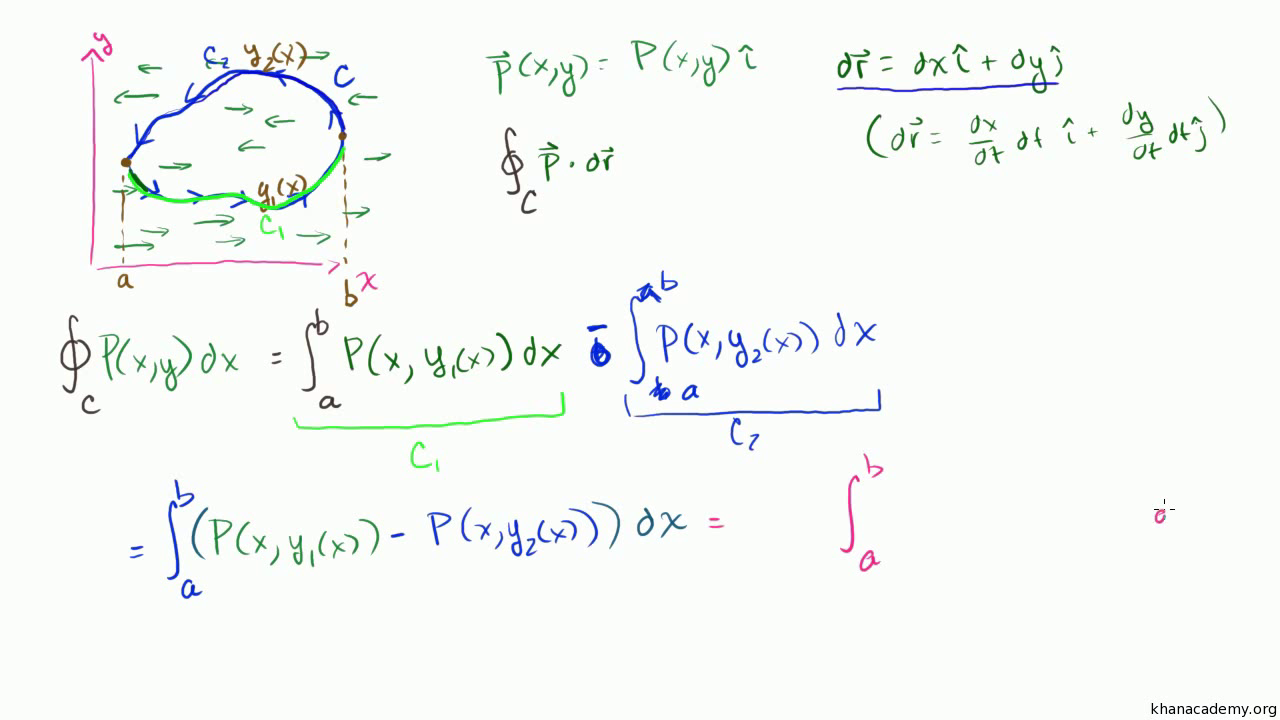 y
C₂ y₂(x) C
y₁(x)
C₁
a b x
P⃗(x,y) = P(x,y) î
dr⃗ = dx î + dy ĵ
(dr⃗ = dx/dt dt î + dy/dt dt ĵ)
∮_C P⃗ · dr⃗
∮_C P(x,y) dx = ∫_a^b P(x, y₁(x)) dx - ∫_a^b P(x, y₂(x)) dx
C₁ C₂
= ∫_a^b (P(x, y₁(x)) - P(x, y₂(x))) dx = ∫_a^b
khanacademy.org